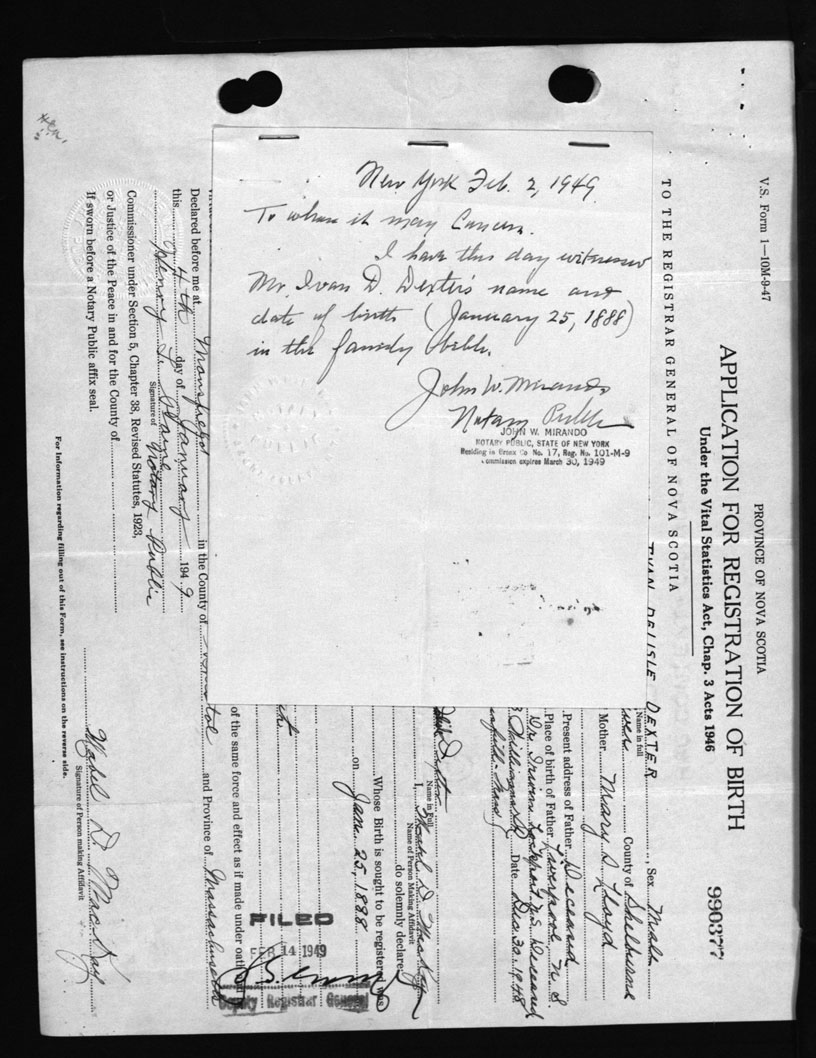 New York Feb. 2, 1949.
To whom it may Concern.
I have this day witnessed
Mr. Ivan D. Dexter's name and
date of birth (January 25, 1888)
in the family bible.
John W. Mirando
Notary Public
JOHN W. MIRANDO
NOTARY PUBLIC, STATE OF NEW YORK
Residing in Bronx Co No. 17, Reg. No. 101-M-9
Commission expires March 30, 1949
V.S. Form 1—10M-9-47
PROVINCE OF NOVA SCOTIA
APPLICATION FOR REGISTRATION OF BIRTH
990377
Under the Vital Statistics Act, Chap. 3 Acts 1946
TO THE REGISTRAR GENERAL OF NOVA SCOTIA
IVAN DELISLE DEXTER Sex Male
Name in full
County of Shelburne
Mother Mary S. Lloyd
Present address of Father Deceased
Place of birth of Father Liverpool, N.S.
Dr. Irwin Lockeport N.S. Deceased
Williams Date Dec. 30. 1948
Name in Full
I, Mabel D. MacKay
Name of Person Making Affidavit
do solemnly declare:
Whose Birth is sought to be registered was
on Jan. 25, 1888
of the same force and effect as if made under oath
Declared before me at Mansfield in the County of Bristol and Province of Massachusetts
this 4th day of January 1949
Henry
Signature of Notary Public
Commissioner under Section 5, Chapter 38, Revised Statutes, 1923,
or Justice of the Peace in and for the County of
If sworn before a Notary Public affix seal.
Mabel D. MacKay
Signature of Person making Affidavit
For Information regarding filling out of this Form, see instructions on the reverse side.
FILED
14 1949
Deputy Registrar General